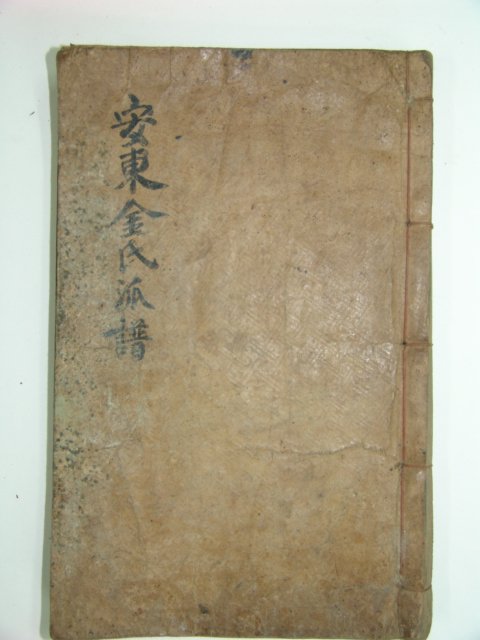 安東金氏派譜